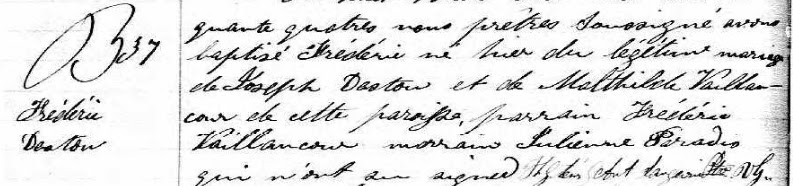 B 37
Frédéric
Daston
quante quatres nous prêtres sousigné avons
baptisé Frédéric né hier du légitime mariage
de Joseph Daston et de Malthilde Vaillan-
cour de cette paroisse, parrain Frédéric
Vaillancour marrain Julienne Paradis
qui n'ont su signer